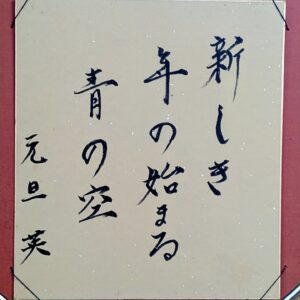 新しき
年の始まる
青の空
元旦 英